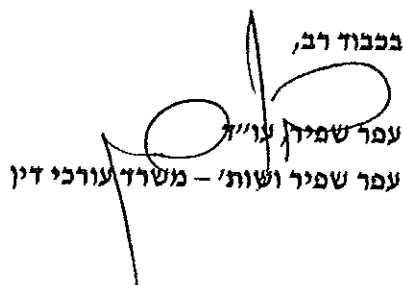 בכבוד רב,
עפר שפיר, עו"ד
עפר שפיר ושות' – משרד עורכי דין